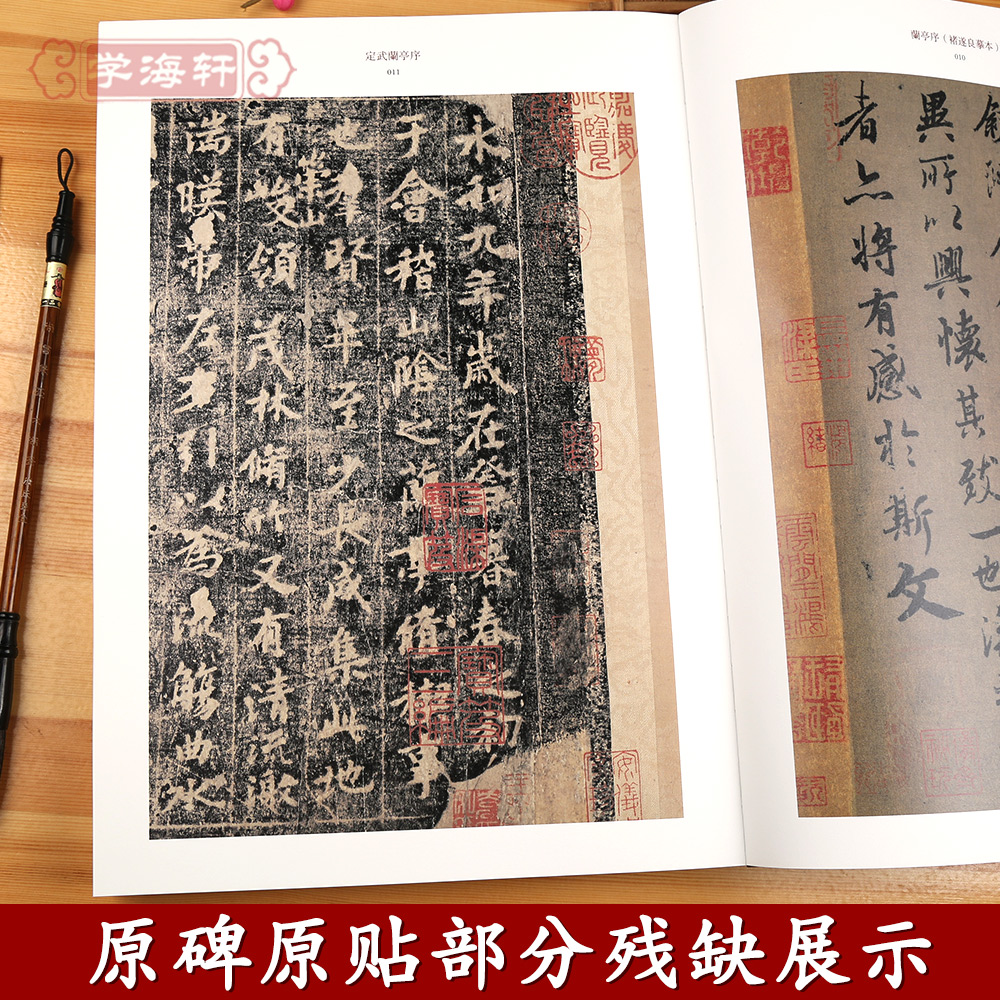 学海轩
定武蘭亭序
011
永和九年歲在癸暮春之初
于會稽山陰之蘭亭脩禊事
也羣賢畢至少長咸集此地
有峻領茂林脩竹又有清流激
崇山
湍暎帶左右引以為流觴曲水
蘭亭序（褚遂良摹本）
010
異所以興懷其致一也
者亦將有感於斯文
原碑原贴部分残缺展示